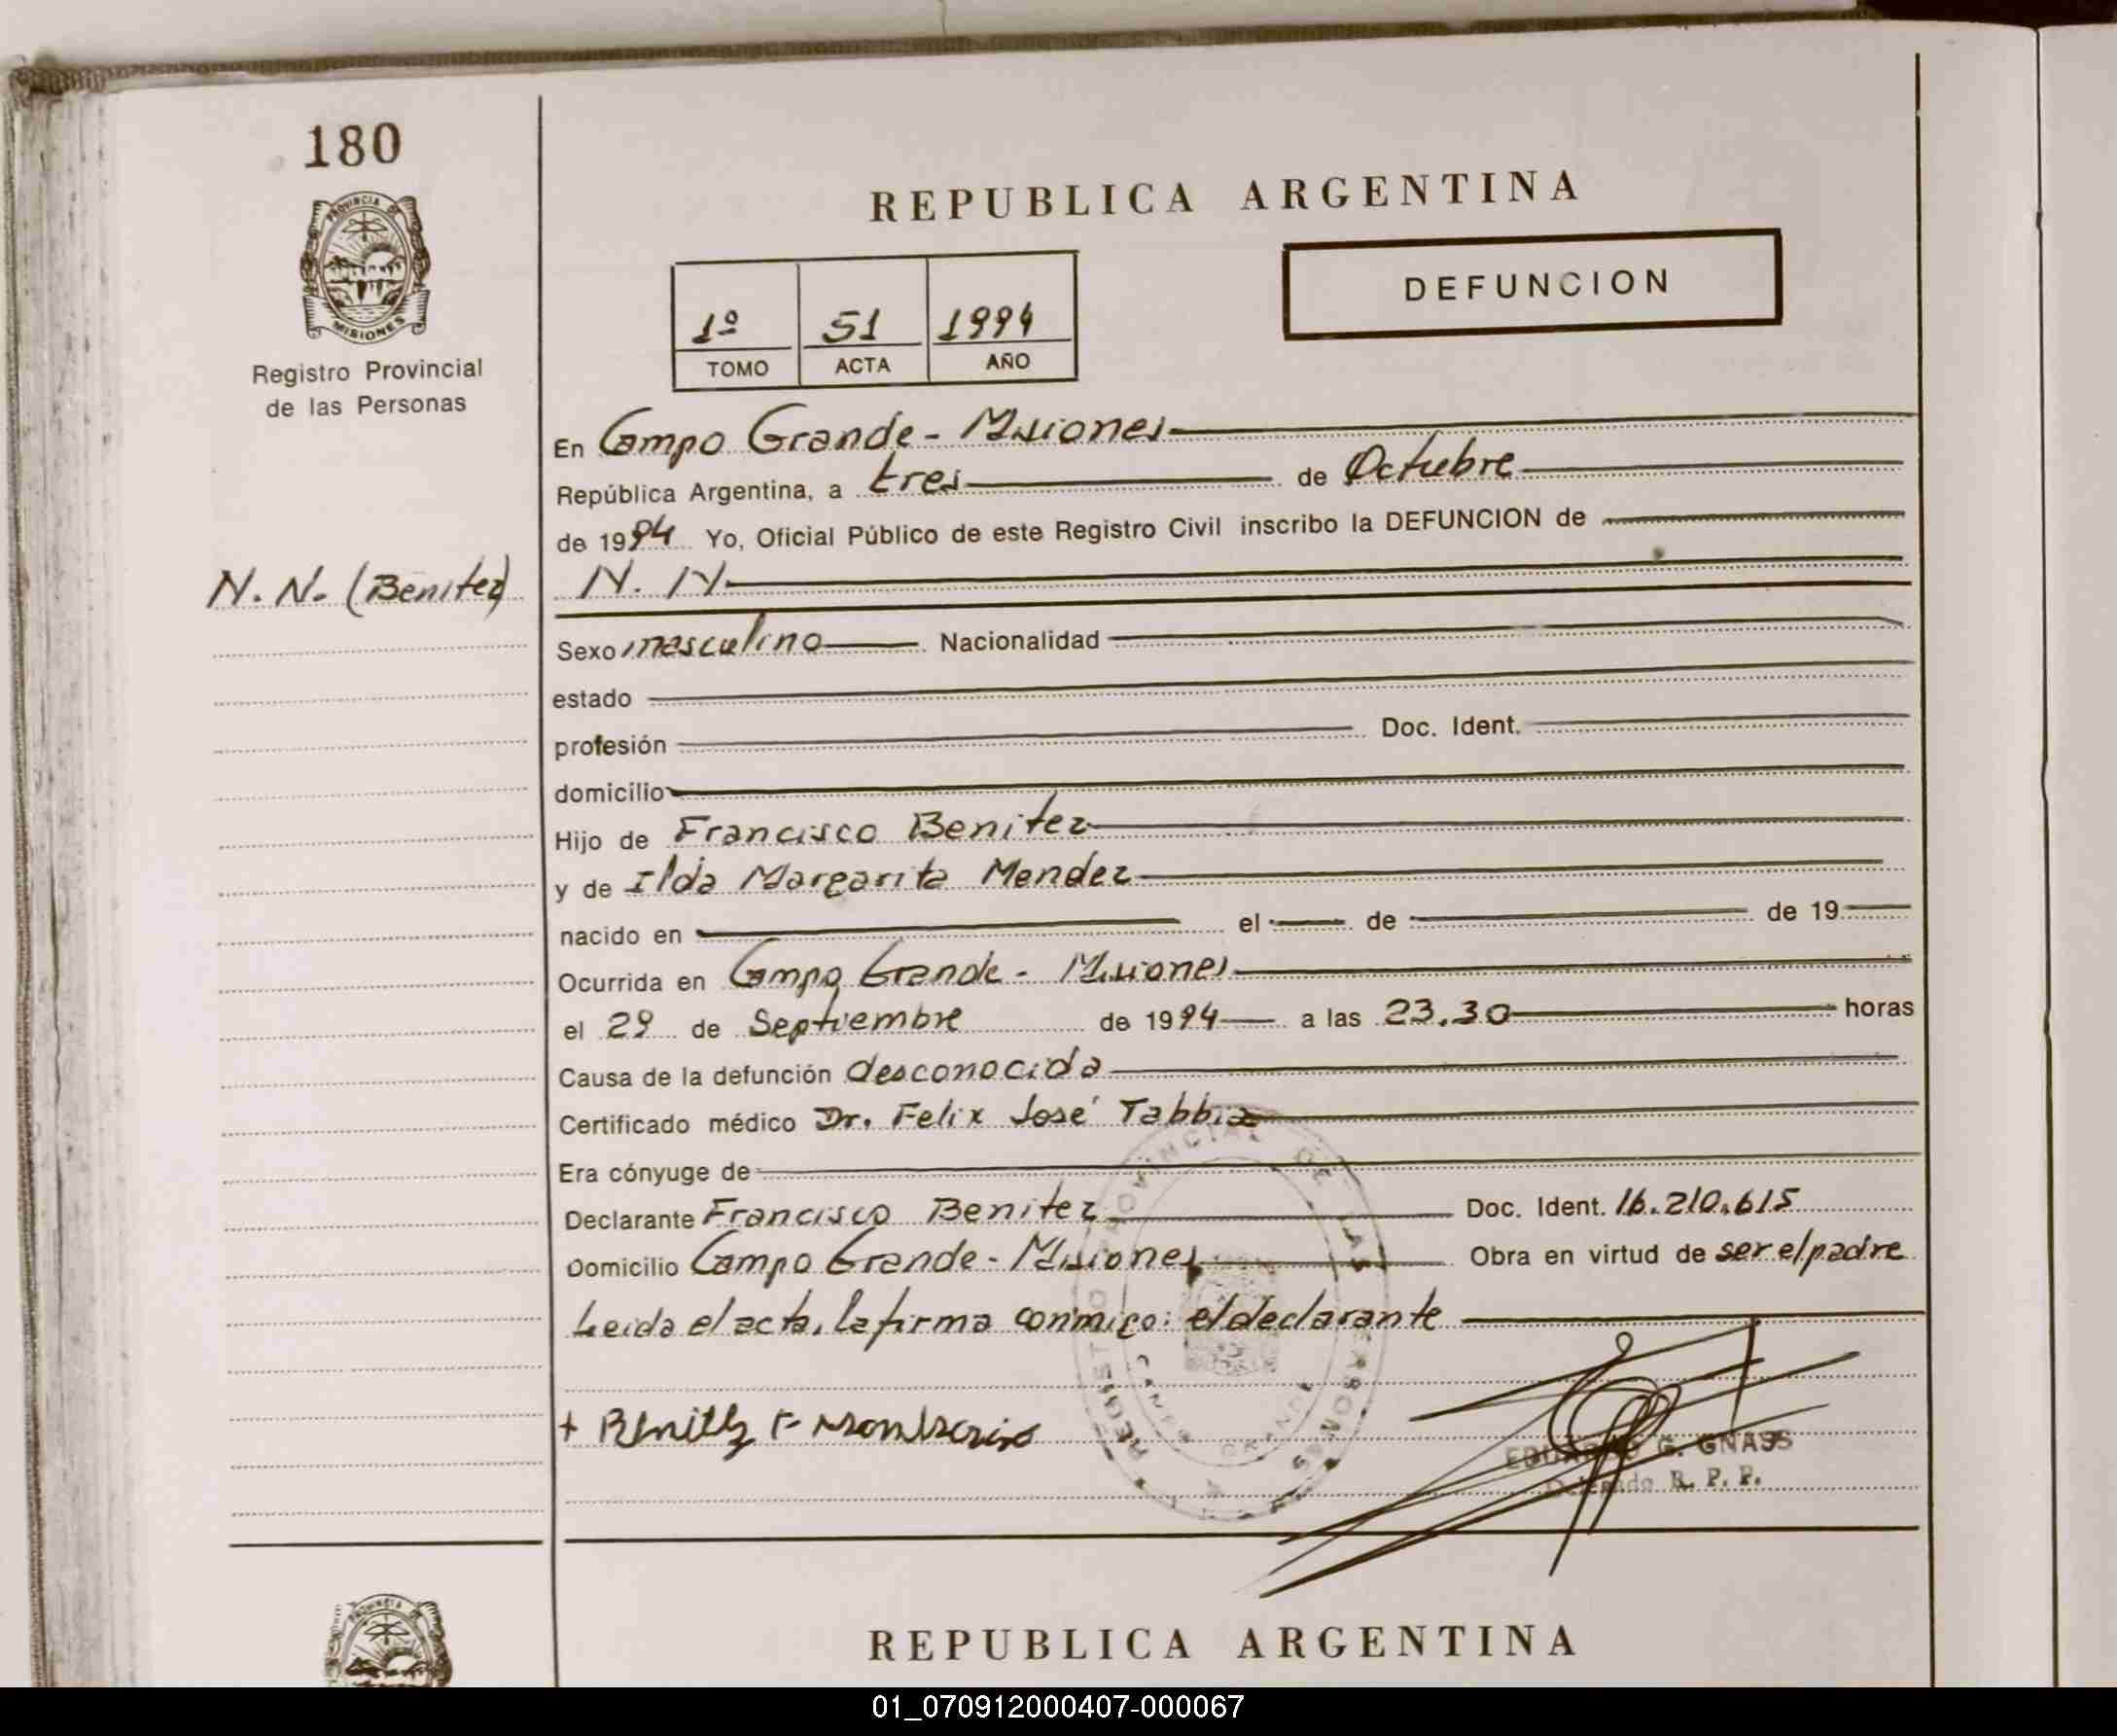 180
PROVINCIA DE
MISIONES
Registro Provincial
de las Personas
REPUBLICA ARGENTINA
DEFUNCION
1º 51 1994
TOMO ACTA AÑO
En Campo Grande - Misiones
República Argentina, a tres de Octubre
de 1994 Yo, Oficial Público de este Registro Civil inscribo la DEFUNCION de
N. N. (Benitez) N. N.
Sexo masculino Nacionalidad
estado
profesión Doc. Ident.
domicilio
Hijo de Francisco Benitez
y de Ilda Margarita Mendez
nacido en el de de 19
Ocurrida en Campo Grande - Misiones
el 29 de Septiembre de 1994 a las 23.30 horas
Causa de la defunción desconocida
Certificado médico Dr. Felix José Tabbia
Era cónyuge de
Declarante Francisco Benitez Doc. Ident. 16.210.615
Domicilio Campo Grande - Misiones Obra en virtud de ser el padre
Leida el acta, la firma conmigo: el declarante
REGISTRO PROVINCIAL DE LAS PERSONAS
EDUARDO G. GNASS
Delegado R. P. P.
PROVINCIA DE
REPUBLICA ARGENTINA
01_070912000407-000067